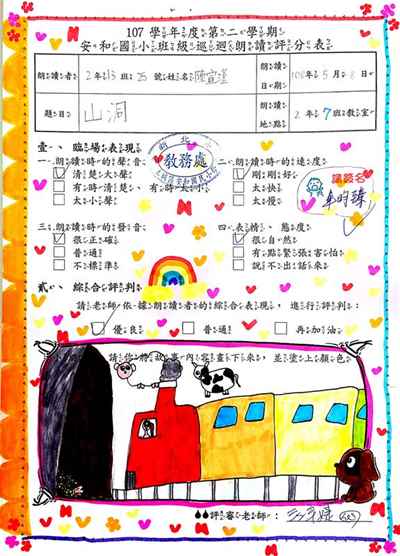 107學年度第二學期
安和國小班級巡迴朗讀評分表
朗讀者 2年13班25號姓名陳宣瑾 朗讀日期 108年5月8日
題目 山洞 朗讀地點 2年7班教室
壹、臨場表現
新北 教務處
一、朗讀時的聲音
清楚大聲
有時清楚、有時小聲
太小聲
二、朗讀時的速度
剛剛好
太快
太慢
請簽名
三、朗讀時的發音
很正確
普通
不標準
四、表情、態度
很自然
有點緊張害怕
說不出話來
貳、綜合評判
請老師依據朗讀者的綜合表現,進行評判:
優良 普通 再加油
請你將故事內容畫下來,並塗上顏色
評審老師: